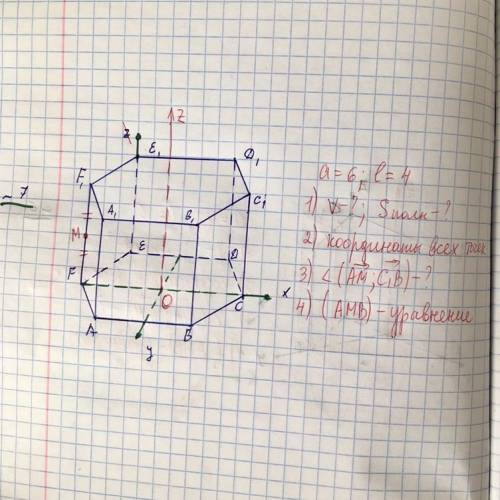 ~ 7
z
Z
E₁
D₁
F₁
C₁
A₁
B₁
M
E
D
F
O
C
x
A
B
y
a = 6; l = 4
1) V - ?; Sполн - ?
2) координаты всех точек
3) ∠(AM; C₁B) - ?
4) (AMB) - уравнение